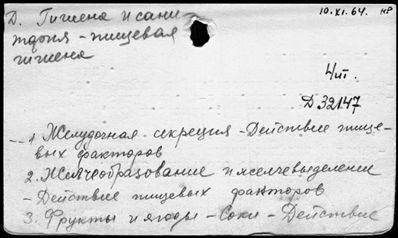 Д. Гигиена и сани
тария - пищевая
гигиена
10.XI.64. НР
4 иг.
Д 32147
1. Желудочная секреция - Действие пище-
вых факторов
2. Желчеобразование и желчевыделение
- Действие пищевых факторов
3. Фрукты и ягоды - Соки - Действие